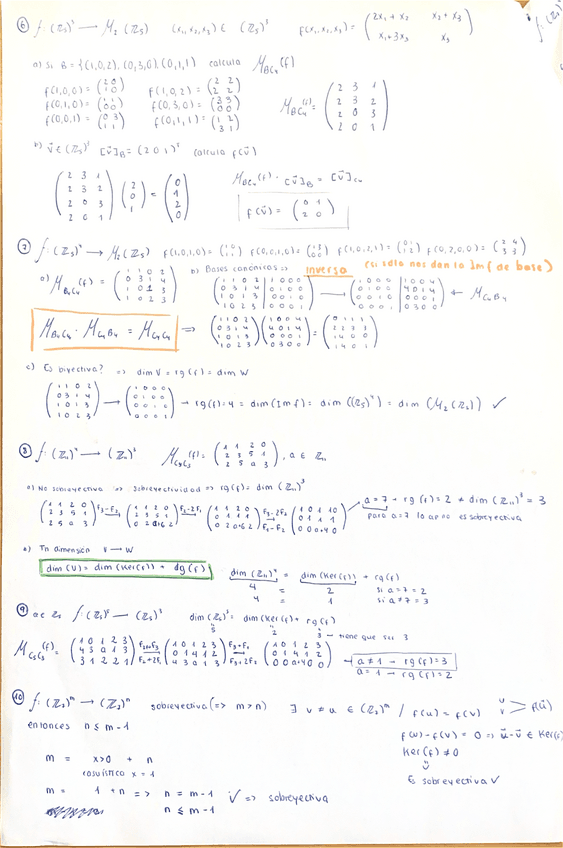 ⑥ f: (ℤ₅)³ → M₂(ℤ₅) (x₁,x₂,x₃) ∈ (ℤ₅)³ f(x₁,x₂,x₃) = ( 2x₁+x₂ x₂+x₃
x₁+3x₂ x₃ )
a) Si B = {(1,0,2), (0,3,0), (0,1,1) calcula M_BC₄(f)
f(1,0,0) = (2 0 / 1 0) f(1,0,2) = (2 2 / 2 2)
f(0,1,0) = f(0,3,0) = (3 3 / 0 0)
f(0,0,1) = f(0,1,1) = (1 2 / 3 1)
M_BC₄(f) = (2 3 1 / 2 3 2 / 2 0 3 / 2 0 1)
b) v⃗ ∈ (ℤ₅)³ [v⃗]_B = (2 0 1)ᵗ calcula f(v⃗)
(2 3 1 / 2 3 2 / 2 0 3 / 2 0 1) (2 / 0 / 1) = (0 / 1 / 2 / 0)
M_BC₄(f) · [v⃗]_B = [v⃗]_C₄
f(v⃗) = (0 1 / 2 0)
⑦ f: (ℤ₅)⁴ → M₂(ℤ₅) f(1,0,1,0) = f(0,0,1,0) = f(1,0,2,1) = (0 1 / 1 2) f(0,2,0,0) = (2 4 / 3 3)
a) M_B₄C₄(f) = (1 1 0 2 / 0 3 1 4 / 1 0 1 3 / 1 0 2 3) b) Bases canónicas => inverso (si solo nos dan la Imf de base)
(1 1 0 2 | 1 0 0 0 / 0 3 1 4 | 0 1 0 0 / 1 0 1 3 | 0 0 1 0 / 1 0 2 3 | 0 0 0 1) → ← M_C₄B₄
M_B₄C₄ · M_C₄B₄ = M_C₄C₄ => (1 1 0 2 / 0 3 1 4 / 1 0 1 3 / 1 0 2 3) (1 0 0 4 / 4 0 1 4 / 0 0 0 1 / 0 3 0 0) = (0 1 1 1 / 2 2 3 3 / 1 4 0 0 / 1 4 0 1)
c) Es biyectiva? => dim V = rg(f) = dim W
(1 1 0 2 / 0 3 1 4 / 1 0 1 3 / 1 0 2 3) → (1 0 0 0 / 0 1 0 0 / 0 0 1 0 / 0 0 0 1) → rg(f) = 4 = dim(Imf) = dim((ℤ₅)⁴) = dim(M₂(ℤ₅)) ✓
⑧ f: (ℤ₁₁)⁴ → (ℤ₁₁)³ M_C₄C₃(f) = (1 1 2 0 / 2 3 5 1 / 2 5 a 3), a ∈ ℤ₁₁
a) No sobreyectiva => sobreyectividad => rg(f) = dim(ℤ₁₁)³
(1 1 2 0 / 2 3 5 1 / 2 5 a 3) F₃-F₂ → F₂-2F₁ → (1 1 2 0 / 0 1 1 1) F₁-F₂ → → a = 7 → rg(f) = 2 ≠ dim(ℤ₁₁)³ = 3
para a=7 la ap no es sobreyectiva
Tn dimensión V → W
dim(V) = dim(Ker(f)) + dg(f)
dim(ℤ₁₁)⁴ = dim(Ker(f)) + rg(f)
4 = 2 si a = 7 = 2
4 = 1 si a ≠ 7 = 3
⑨ a ∈ ℤ₅ f: (ℤ₅)⁵ → (ℤ₅)³ dim(ℤ₅)⁵ = dim(Ker f) + rg(f)
5 2 3 → tiene que ser 3
M_C₅C₃(f) = (1 0 1 2 3 / 4 3 0 1 3 / 3 1 2 2 1) → (1 0 1 2 3 / 0 1 4 1 2 / 4 3 a 1 3) → (1 0 1 2 3 / 0 1 4 1 2 / 0 0 a+4 0 0) → a ≠ 1 → rg(f) = 3
a = 1 → rg(f) = 2
⑩ f: (ℤ₂)ᵐ → (ℤ₂)ⁿ sobreyectiva (=> m > n) ∃ v ≠ u ∈ (ℤ₂)ᵐ / f(u) = f(v)
entonces n ≤ m-1 f(u) - f(v) = 0 => u⃗ - v⃗ ∈ Ker(f)
Ker(f) ≠ 0
m = x>0 + n
casuístico x = 1
Es sobreyectiva ✓
m = 1 + n => n = m-1 ✓ => sobreyectiva
n ≤ m-1